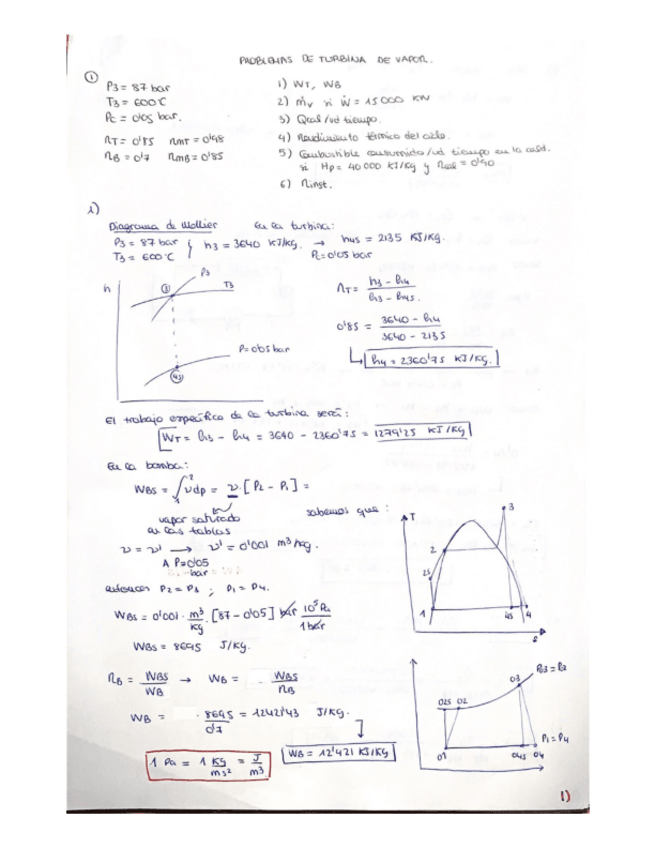 PROBLEMAS DE TURBINA DE VAPOR.
①
P3 = 87 bar
T3 = 600°C
Pc = 0'05 bar.
ηT = 0'85 ηmT = 0'98
ηB = 0'7 ηmB = 0'85
1) WT, WB
2) ṁv si Ẇ = 15000 KW
3) Qcal/ud tiempo.
4) Rendimiento térmico del ciclo.
5) Combustible consumido/ud tiempo en la cald.
si Hp = 40000 KJ/Kg y ηcal = 0'90
6) ηinst.
1)
Diagrama de Mollier
En la turbina:
P3 = 87 bar
T3 = 600°C
h3 = 3640 KJ/Kg. → h4s = 2135 KJ/Kg.
Pc = 0'05 bar
h
P3
③
T3
P=0'05 bar
④s
ηT = h3 - h4 / h3 - h4s.
0'85 = 3640 - h4 / 3640 - 2135
h4 = 2360'75 KJ/Kg.
El trabajo específico de la turbina será:
WT = h3 - h4 = 3640 - 2360'75 = 1279'25 KJ/Kg
En la bomba:
WBs = ∫₁² vdp = v·[P2 - P1] =
vapor saturado
en las tablas
sabemos que:
v = v' → v' = 0'001 m³/Kg.
A P=0'05
bar
entonces P2 = P3 ; P1 = P4.
WBs = 0'001 · m³/Kg · [87 - 0'05] bar 10⁵ Pa / 1 bar
WBs = 8695 J/Kg.
ηB = WBs / WB → WB = WBs / ηB
WB = 8695 / 0'7 = 12421'43 J/Kg.
WB = 12'421 KJ/Kg
1 Pa = 1 Kg / ms² = J / m³
T
3
2
2s
1
4s
4
s
P3 = P2
03
02s 02
P1 = P4
01
04s 04
1)